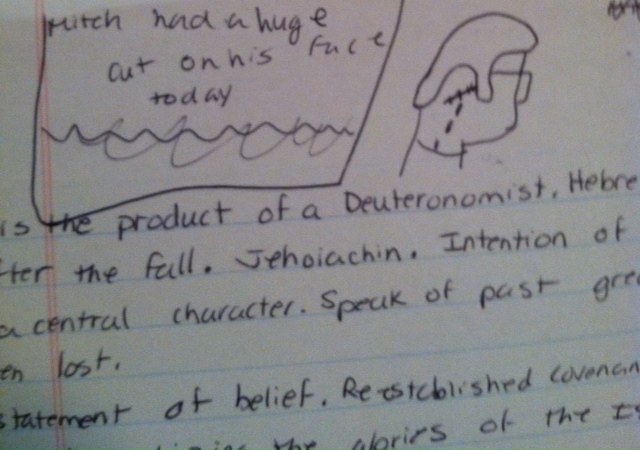 Mitch had a huge
cut on his face
today
is the product of a Deuteronomist. Hebre
fter the fall. Jehoiachin. Intention of
a central character. Speak of past grea
en lost.
statement of belief. Re-established covenan
the glories of the